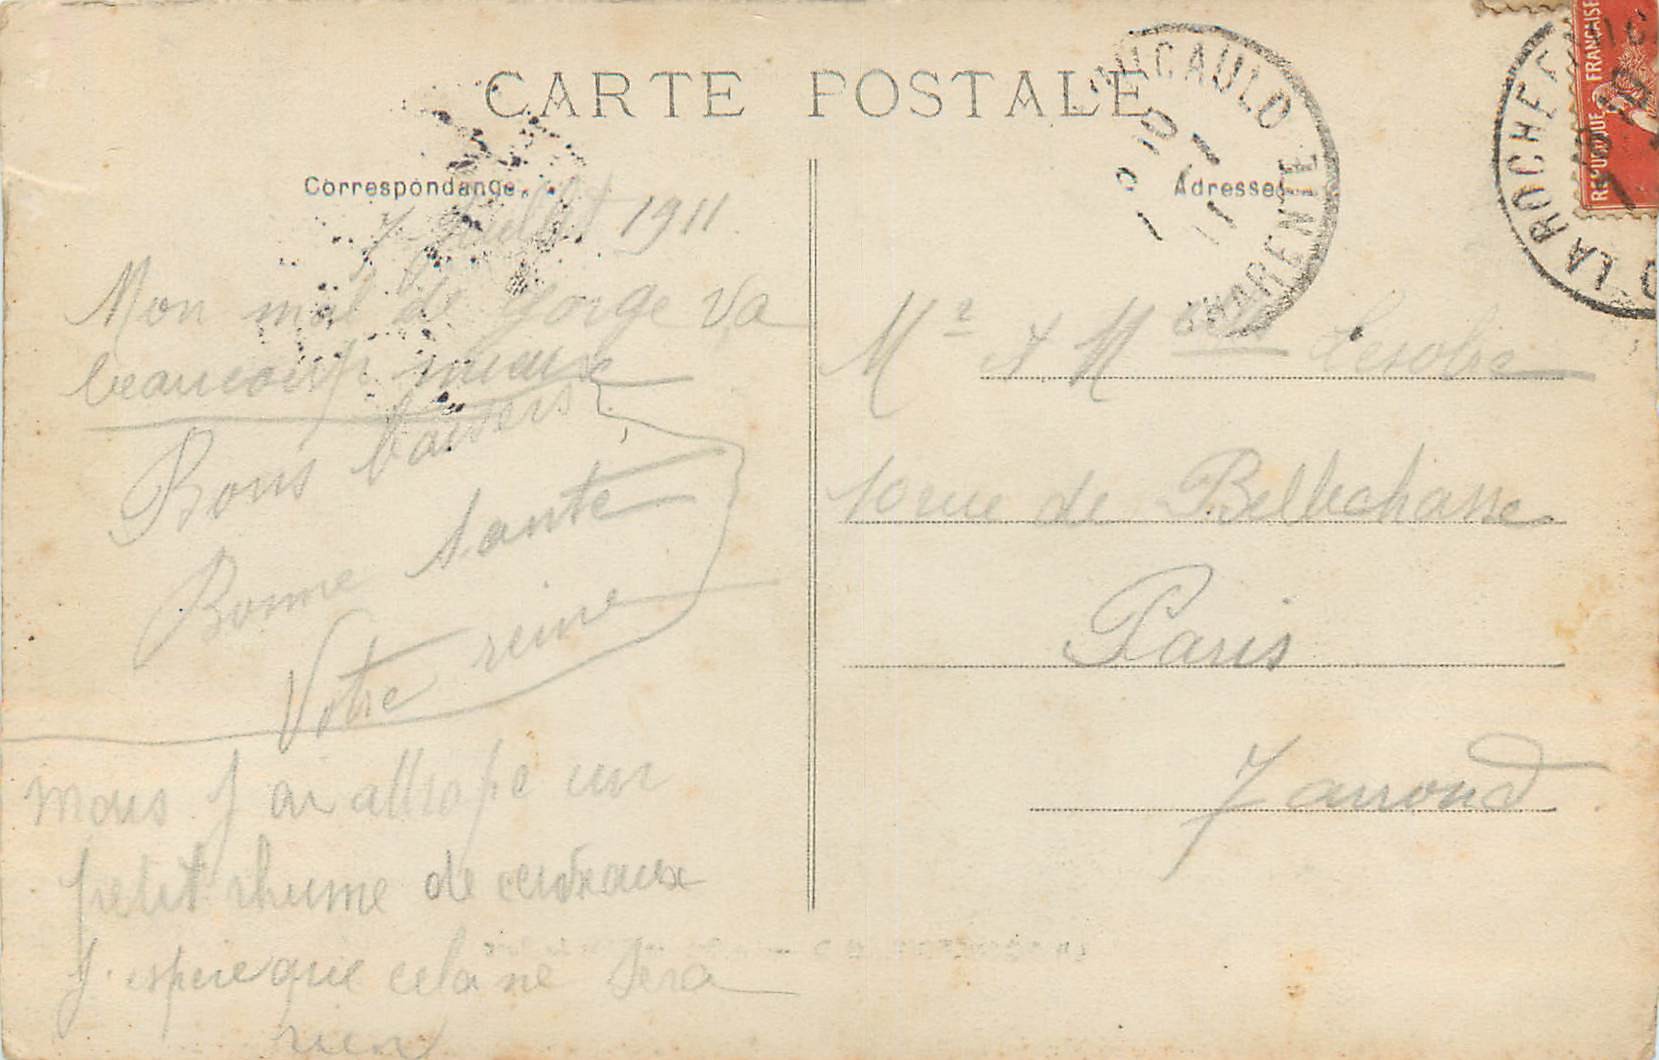 CARTE POSTALE
Correspondance
Adresse
7 Juillet 1911
Mon mal de gorge va
beaucoup mieux
Bons baisers
Bonne Santé
Votre reine
mais J ai attrope un
petit rhume de cerdeaux
J. espere que cela ne sera
rien
Mr et M
10 rue de Bellechasse
Paris
7 arrond
LA ROCHEFOUCAULD
CHARENTE
REPUBLIQUE FRANÇAISE